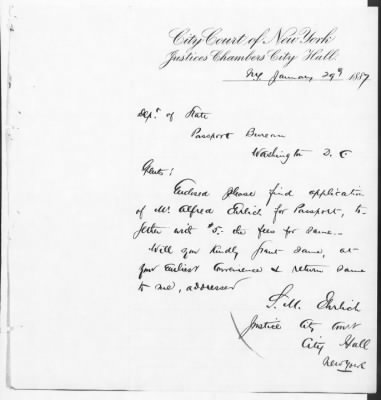 City Court of New York
Justices Chambers City Hall.
NY January 29th 1887
Dept. of State
Passport Bureau
Washington D. C
Gents:
Enclosed please find application
of Mr. Alfred Ehrlich for Passport, to-
gether with $5- the fees for same.-
Will you kindly grant same, at
your Earliest convenience & return same
to me, addressed
S. M. Ehrlich
Justice City Court
City Hall
New York